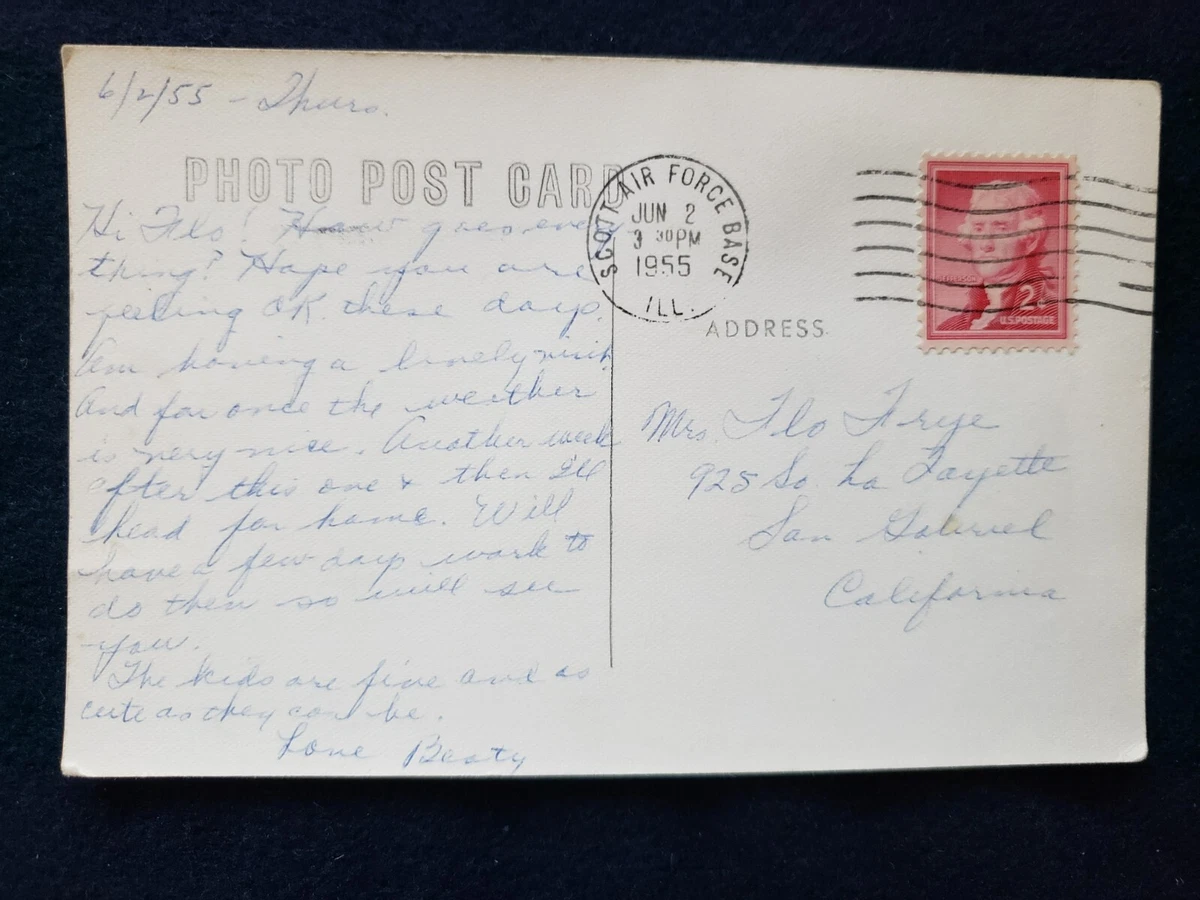 6/2/55 - Thurs.
PHOTO POST CARD
Hi Flo! How goes every
thing? Hope you are
feeling OK these days.
Am having a lovely visit
And for once the weather
is very nice. Another week
after this one & then I'll
head for home. Will
have a few days work to
do then so will see
you.
The kids are fine and as
cute as they can be.
Love Beaty
SCOTT AIR FORCE BASE
JUN 2
3 30 PM
1955
ILL.
JEFFERSON
2¢
U.S. POSTAGE
ADDRESS
Mrs. Flo Frye
925 So. La Fayette
San Gabriel
California